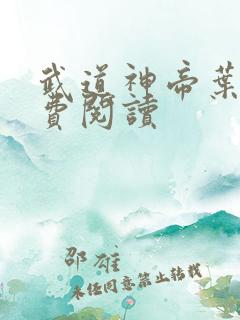 武道神帝葉
費閱讀
邵雄
未任同意禁止转载